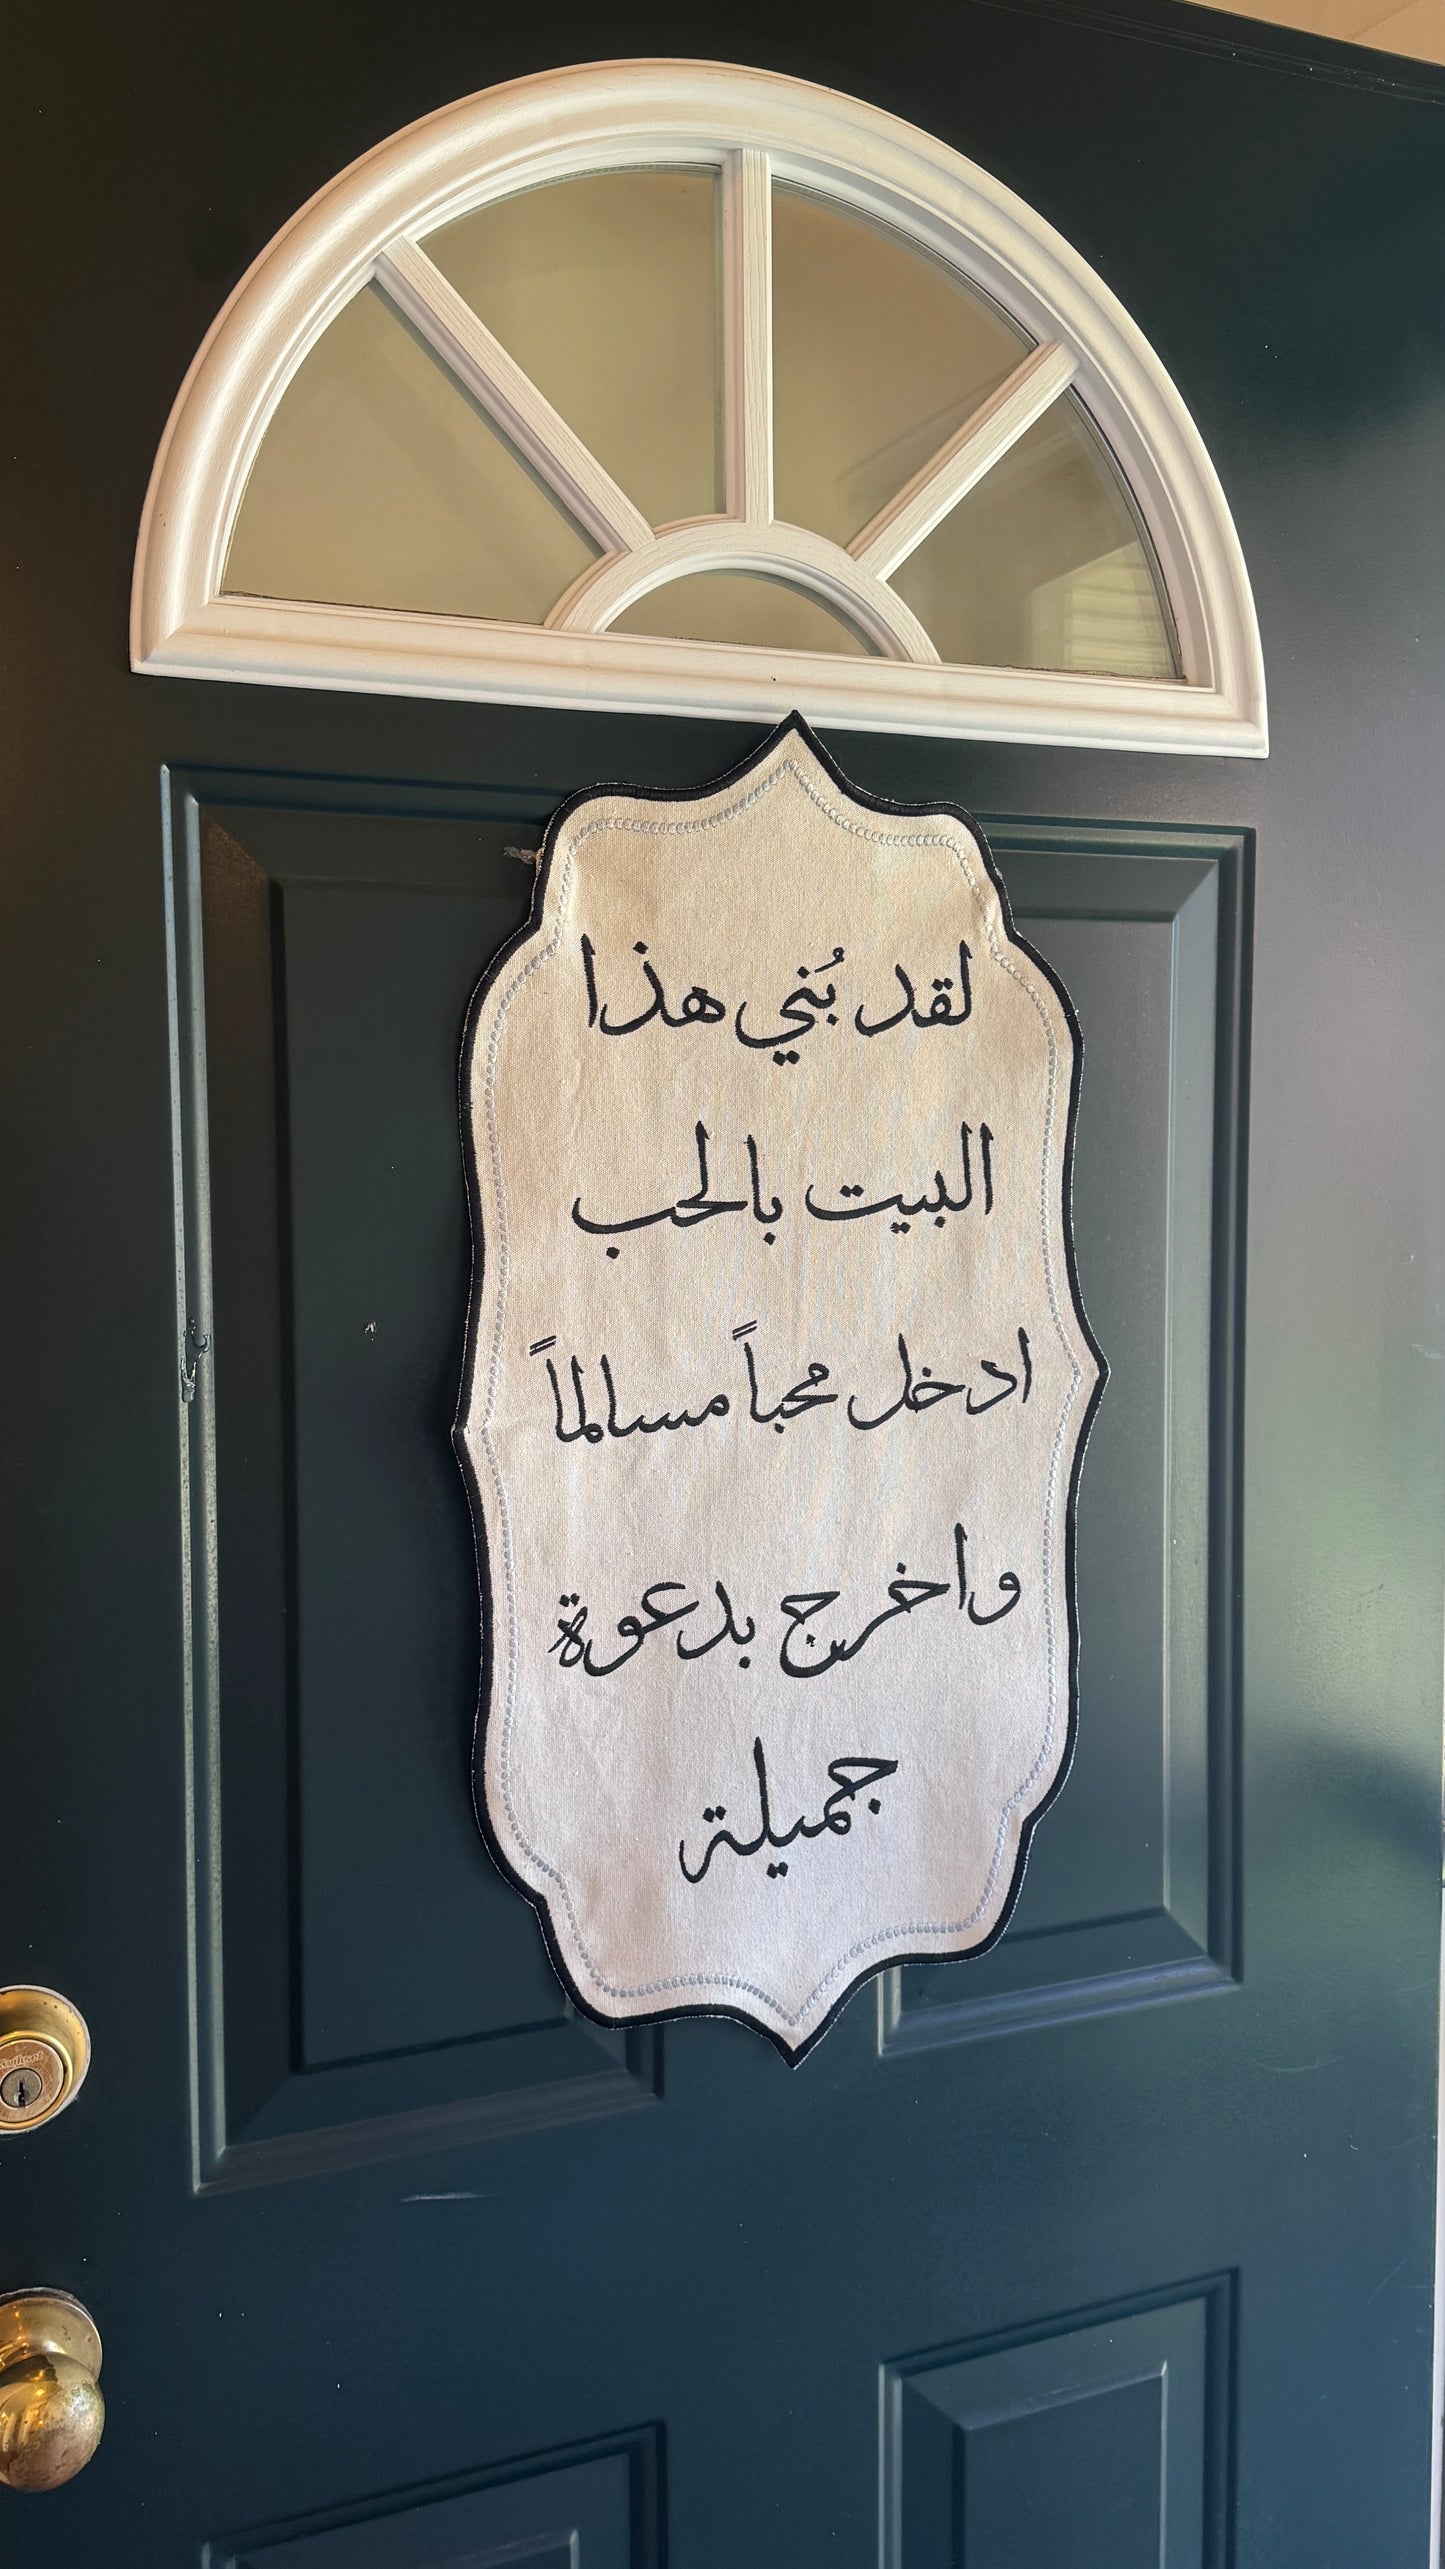 لقد بُني هذا
البيت بالحب
ادخل محباً مسالماً
واخرج بدعوة
جميلة
Kwikset